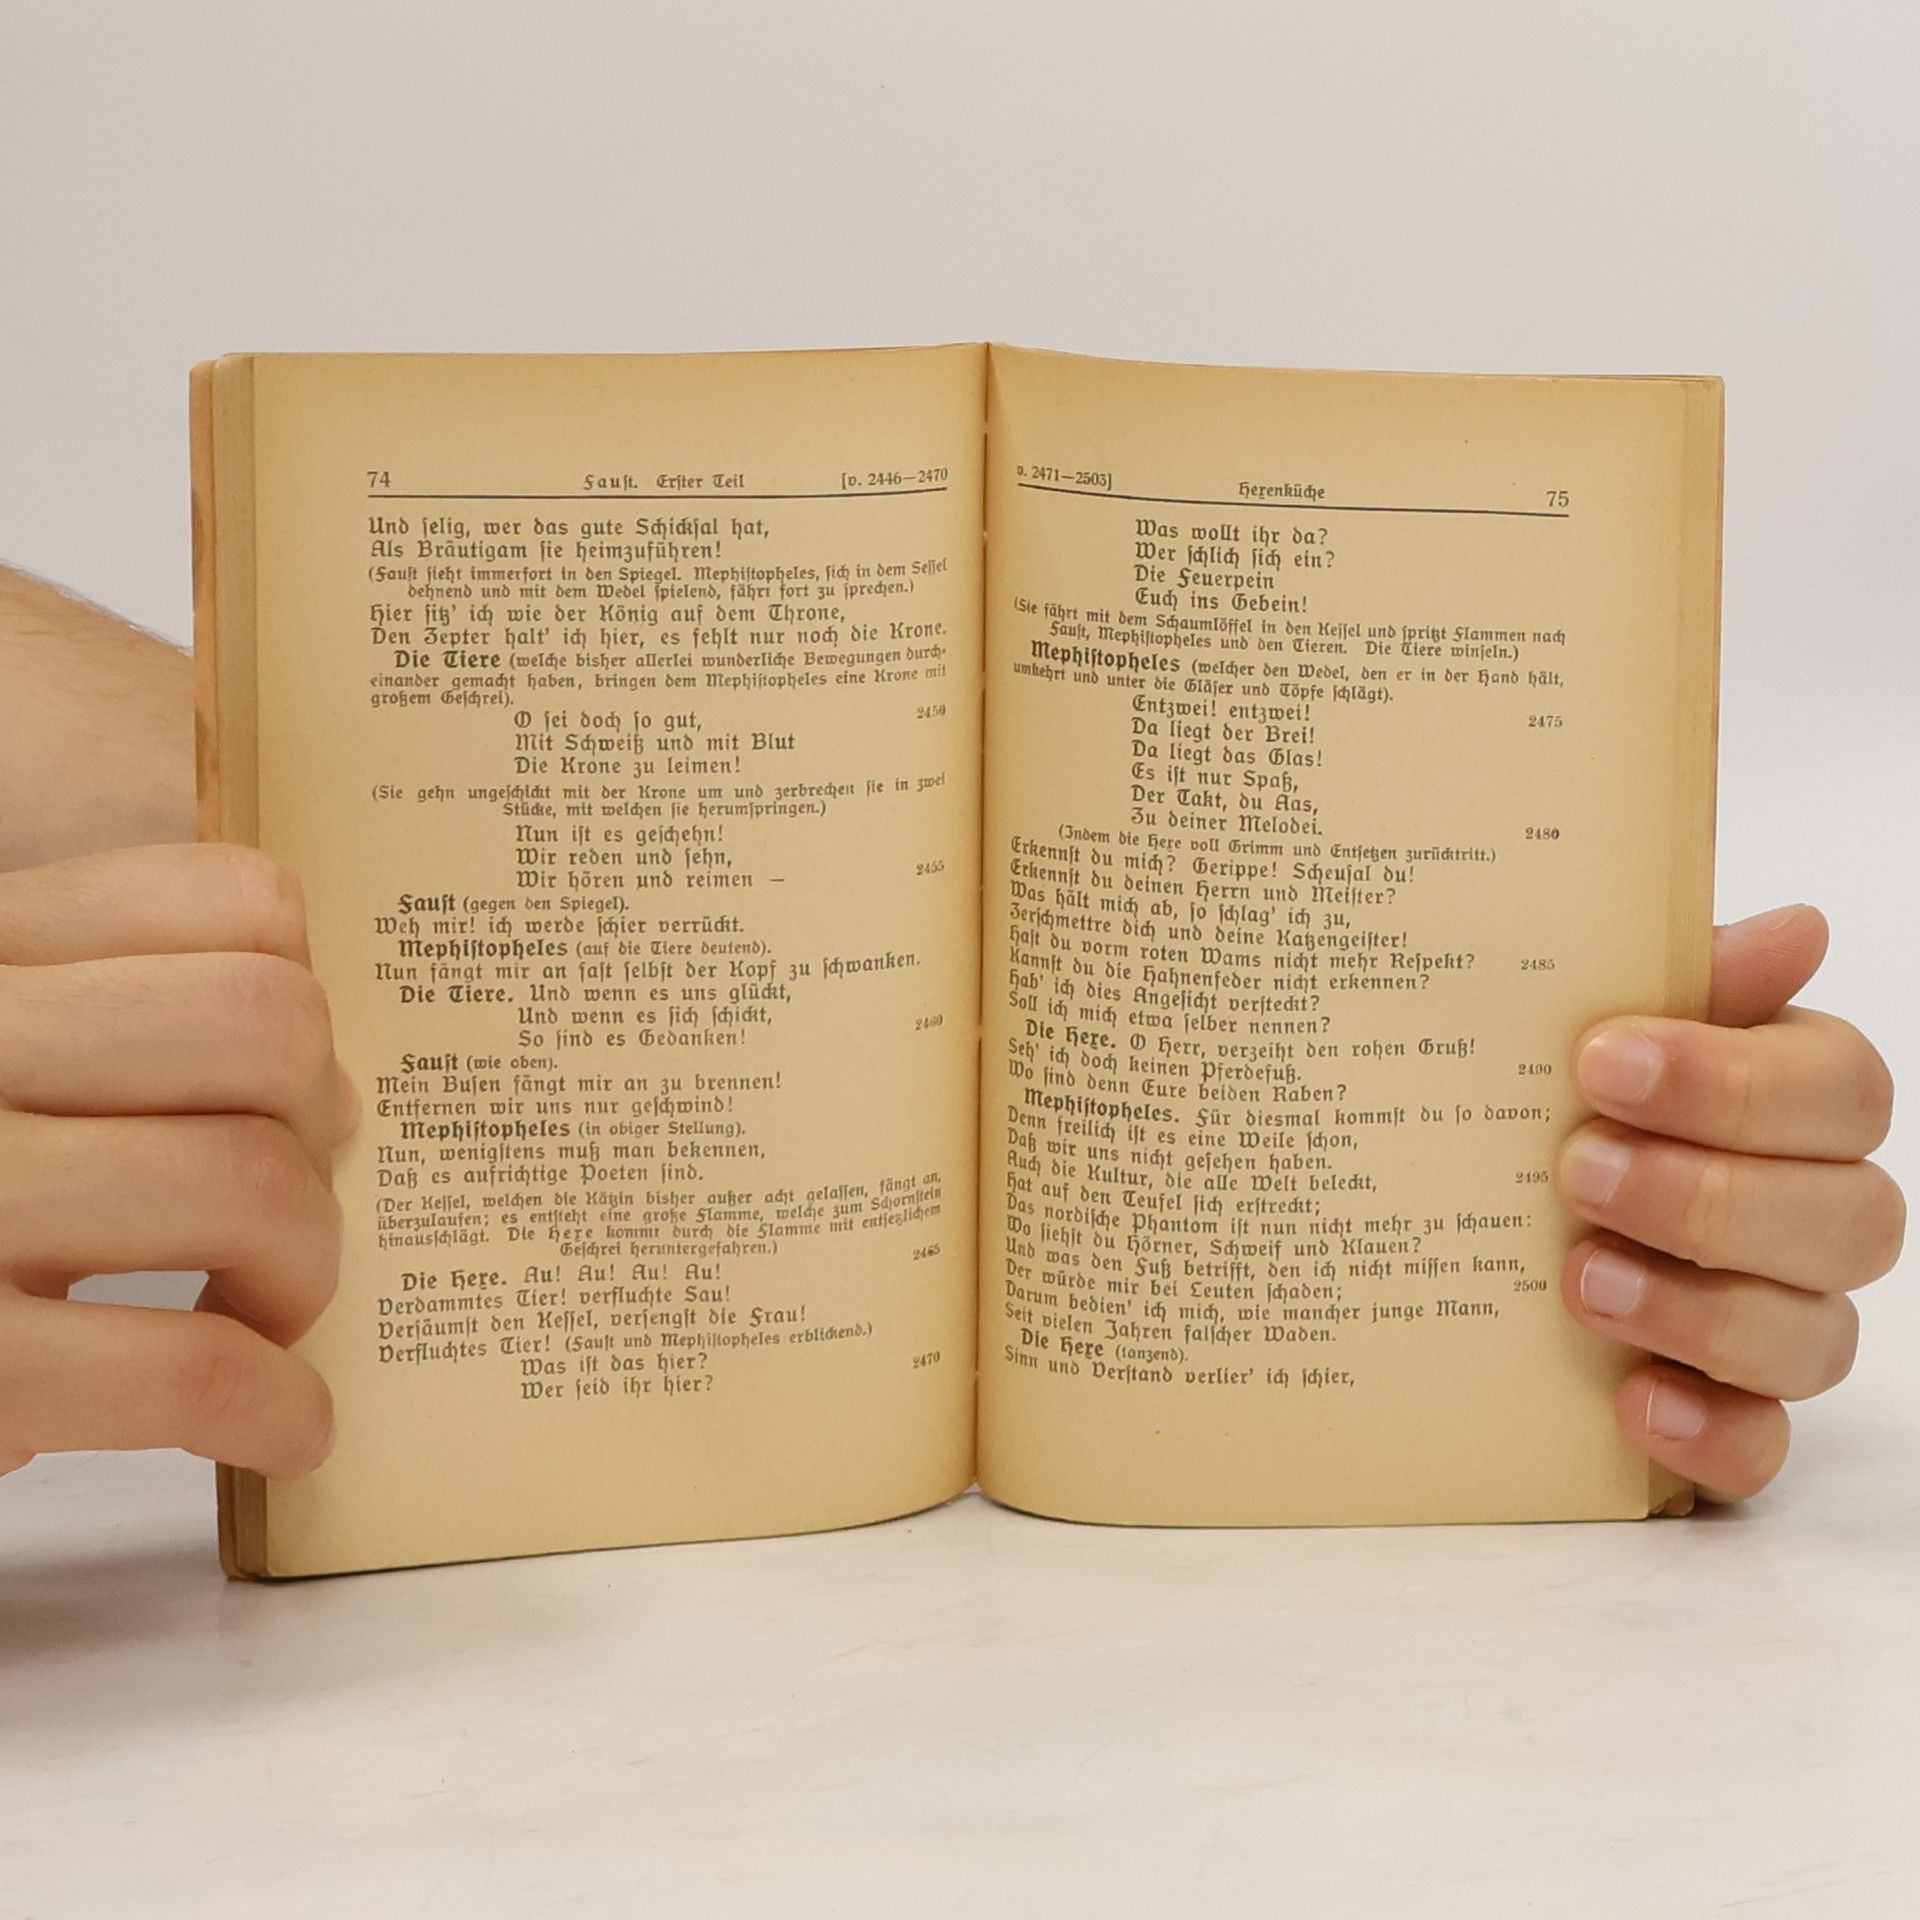 74 Fauſt. Erſter Teil [v. 2446—2470
Und ſelig, wer das gute Schickſal hat,
Als Bräutigam ſie heimzuführen!
(Fauſt ſieht immerfort in den Spiegel. Mephiſtopheles, ſich in dem Seſſel
dehnend und mit dem Wedel ſpielend, fährt fort zu ſprechen.)
Hier ſitz' ich wie der König auf dem Throne,
Den Zepter halt' ich hier, es fehlt nur noch die Krone.
Die Tiere (welche bisher allerlei wunderliche Bewegungen durch-
einander gemacht haben, bringen dem Mephiſtopheles eine Krone mit
großem Geſchrei).
O ſei doch ſo gut, 2450
Mit Schweiß und mit Blut
Die Krone zu leimen!
(Sie gehn ungeſchickt mit der Krone um und zerbrechen ſie in zwei
Stücke, mit welchen ſie herumſpringen.)
Nun iſt es geſchehn!
Wir reden und ſehn,
Wir hören und reimen — 2455
Fauſt (gegen den Spiegel).
Weh mir! ich werde ſchier verrückt.
Mephiſtopheles (auf die Tiere deutend).
Nun fängt mir an faſt ſelbſt der Kopf zu ſchwanken.
Die Tiere. Und wenn es uns glückt,
Und wenn es ſich ſchickt,
So ſind es Gedanken! 2460
Fauſt (wie oben).
Mein Buſen fängt mir an zu brennen!
Entfernen wir uns nur geſchwind!
Mephiſtopheles (in obiger Stellung).
Nun, wenigſtens muß man bekennen,
Daß es aufrichtige Poeten ſind.
(Der Keſſel, welchen die Kätzin bisher außer acht gelaſſen, fängt an,
überzulaufen; es entſteht eine große Flamme, welche zum Schornſtein
hinausſchlägt. Die Hexe kommt durch die Flamme mit entſetzlichem
Geſchrei heruntergefahren.)
Die Hexe. Au! Au! Au! Au! 2465
Verdammtes Tier! verfluchte Sau!
Verſäumſt den Keſſel, verſengſt die Frau!
Verfluchtes Tier! (Fauſt und Mephiſtopheles erblickend.)
Was iſt das hier?
Wer ſeid ihr hier? 2470
v. 2471—2503] Hexenküche 75
Was wollt ihr da?
Wer ſchlich ſich ein?
Die Feuerpein
Euch ins Gebein!
(Sie fährt mit dem Schaumlöffel in den Keſſel und ſpritzt Flammen nach
Fauſt, Mephiſtopheles und den Tieren. Die Tiere winſeln.)
Mephiſtopheles (welcher den Wedel, den er in der Hand hält,
umkehrt und unter die Gläſer und Töpfe ſchlägt).
Entzwei! entzwei! 2475
Da liegt der Brei!
Da liegt das Glas!
Es iſt nur Spaß,
Der Takt, du Aas,
Zu deiner Melodei. 2480
(Indem die Hexe voll Grimm und Entſetzen zurücktritt.)
Erkennſt du mich? Gerippe! Scheuſal du!
Erkennſt du deinen Herrn und Meiſter?
Was hält mich ab, ſo ſchlag' ich zu,
Zerſchmettre dich und deine Katzengeiſter!
Haſt du vorm roten Wams nicht mehr Reſpekt? 2485
Kannſt du die Hahnenfeder nicht erkennen?
Hab' ich dies Angeſicht verſteckt?
Soll ich mich etwa ſelber nennen?
Die Hexe. O Herr, verzeiht den rohen Gruß!
Seh' ich doch keinen Pferdefuß. 2490
Wo ſind denn Eure beiden Raben?
Mephiſtopheles. Für diesmal kommſt du ſo davon;
Denn freilich iſt es eine Weile ſchon,
Daß wir uns nicht geſehen haben.
Auch die Kultur, die alle Welt beleckt, 2495
Hat auf den Teufel ſich erſtreckt;
Das nordiſche Phantom iſt nun nicht mehr zu ſchauen:
Wo ſiehſt du Hörner, Schweif und Klauen?
Und was den Fuß betrifft, den ich nicht miſſen kann,
Der würde mir bei Leuten ſchaden; 2500
Darum bedien' ich mich, wie mancher junge Mann,
Seit vielen Jahren falſcher Waden.
Die Hexe (tanzend).
Sinn und Verſtand verlier' ich ſchier,